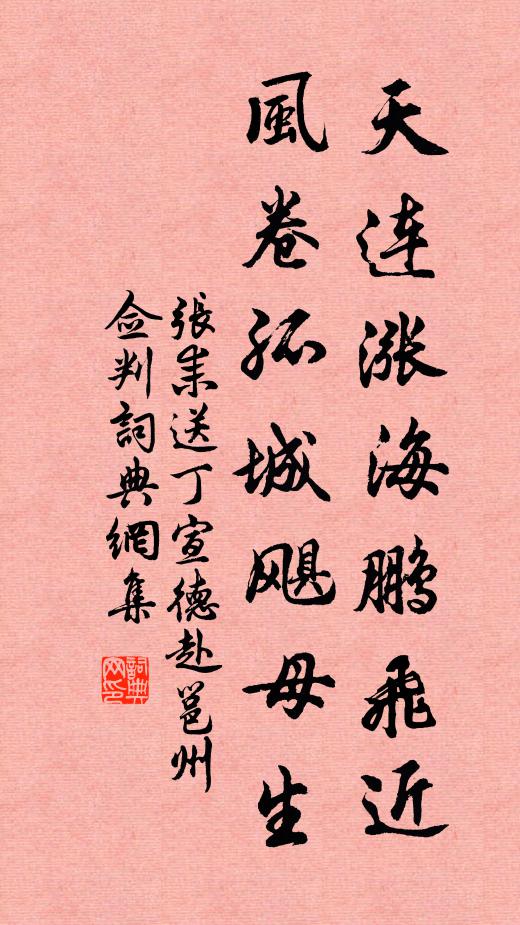 天連涨海鵬飛近
風卷孤城飓母生
張耒送丁宣德赴邕州
佥判詞典網集
詞典
网印